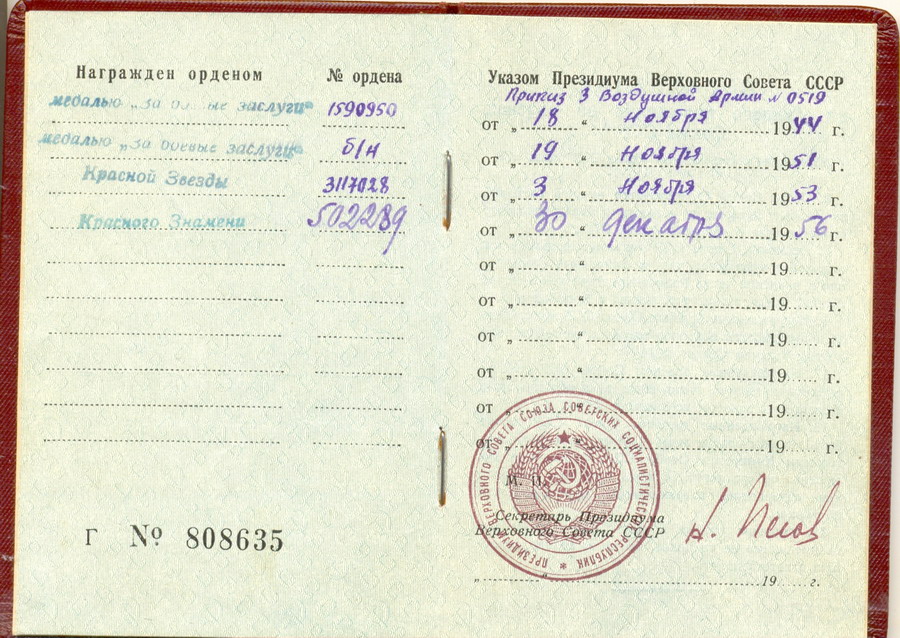 Награжден орденом № ордена
медалью „За боевые заслуги“ 1590950
медалью „За боевые заслуги“ б/н
Красной Звезды 3117028
Красного Знамени 502289
Г № 808635
Указом Президиума Верховного Совета СССР
Приказ 3 Воздушной Армии № 0519
от „ 18 “ Ноября 1944 г.
от „ 19 “ Ноября 1951 г.
от „ 3 “ Ноября 1953 г.
от „ 30 “ декабря 1956 г.
от „ “ 19 г.
от „ “ 19 г.
от „ “ 19 г.
от „ “ 19 г.
от „ “ 19 г.
от „ “ 19 г.
М. П.
ПРЕЗИДИУМ ВЕРХОВНОГО СОВЕТА СОЮЗА СОВЕТСКИХ СОЦИАЛИСТИЧЕСКИХ РЕСПУБЛИК
Секретарь Президиума
Верховного Совета СССР
Н. Пегов
„ “ 19 г.